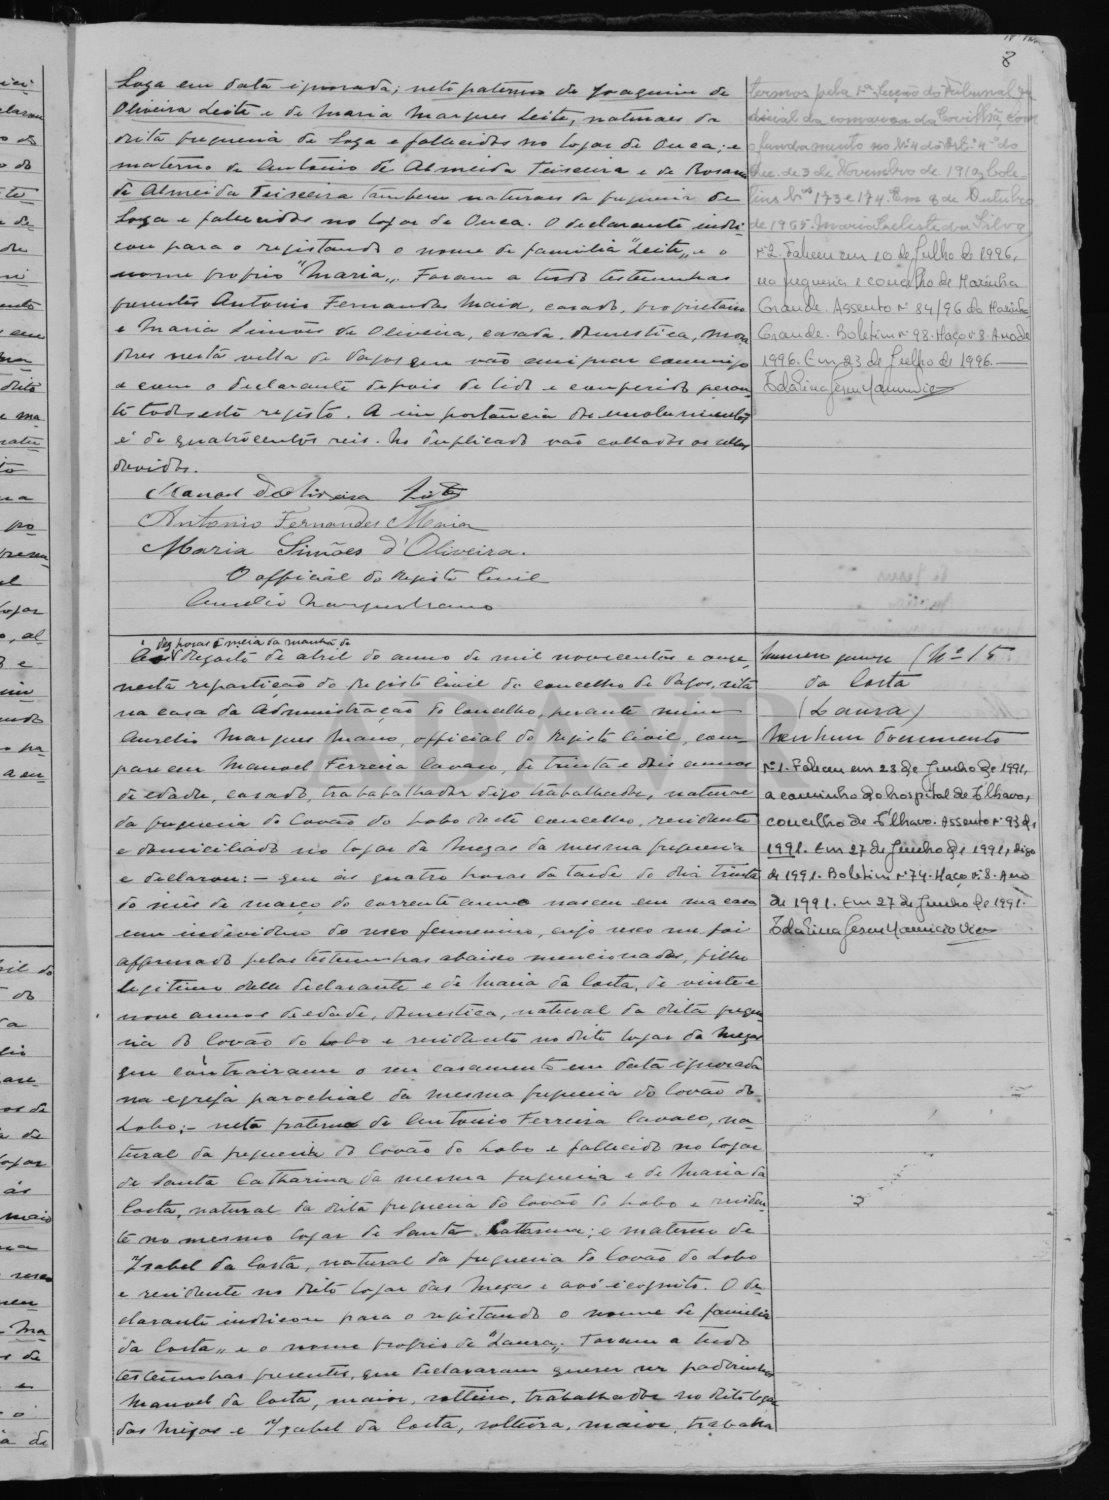 8
Soza em data ignorada; neto paterno de Joaquim de
Oliveira Leite e de Maria Marques Leite, naturaes da
dita freguesia de Soza e fallecidos no logar de Ouca; e
materno de Antonio de Almeida Teixeira e de Rosaria
de Almeida Teixeira tambem naturaes da freguesia de
Soza e fallecidos no logar de Ouca. O declarante indi-
cou para o registando o nome de familia "Leite" e o
nome proprio "Maria". Foram a tudo testemunhas
presentes Antonio Fernandes Maia, casado, proprietario
e Maria Simões de Oliveira, casada, domestica, mora-
dores nesta villa de Vagos que vão assignar commigo
e com o declarante depois de lido e conferido peran-
te todos este registo. A importancia dos emolumentos
é de quatrocentos reis. No duplicado vão collados os sellos
devidos.
Manoel d'Oliveira Leite
Antonio Fernandes Maia
Maria Simões d'Oliveira.
O official do Registo Civil
Aurelio Marques Mano
termos pela 1ª Secção do Tribunal Ju
dicial da comarca da Covilhã com
fundamento no Nº 4 do Artº 4º do
Dec. de 3 de Novembro de 1910, bole-
tins Nos 173 e 174. Em 8 de Outubro
de 1965. Maria Celeste da Silva
Nº 2. Faleceu em 10 de Julho de 1996,
na freguesia e concelho de Marinha
Grande. Assento nº 84/96 da Marinha
Grande. Boletim nº 98. Maço nº 8. Ano de
1996. Em 23 de Julho de 1996.
dez horas e meia da manhã de
Às dezoito de abril do anno de mil novecentos e onze,
nesta repartição do Registo Civil do concelho de Vagos, sita
na casa da Administração do Concelho, perante mim
Aurelio Marques Mano, official do Registo Civil, com-
pareceu Manoel Ferreira Cavaco, de trinta e dois annos
de edade, casado, trababalhador digo trabalhador, natural
da freguesia do Covão do Lobo deste concelho, residente
e domiciliado no logar da Mezas da mesma freguesia
e declarou: - que às quatro horas da tarde do dia trinta
do mês de março do corrente anno nasceu em sua casa
um individuo do sexo femenino, cujo sexo me foi
affirmado pelas testemunhas abaixo mencionadas, filho
legitimo delle declarante e de Maria da Costa, de vinte e
nove annos de edade, domestica, natural da dita fregue-
sia do Covão do Lobo e residente no dito logar da Mezas
que contrairam o seu casamento em data ignorada
na egreja parochial da mesma freguesia do Covão do
Lobo; - neta paterna de Antonio Ferreira Cavaco, na-
tural da freguesia do Covão do Lobo e fallecido no logar
de Santa Catharina da mesma freguesia e de Maria da
Costa, natural da dita freguesia do Covão do Lobo e residen-
te no mesmo logar de Santa Catarina; e materno de
Izabel da Costa, natural da freguesia do Covão do Lobo
e residente no dito logar das Mezas e avô icognito. O de-
clarante indicou para o registando o nome de familia
"da Costa" e o nome proprio de "Laura". Foram a tudo
testemunhas presentes, que declararam querer ser padrinhos
Manoel da Costa, maior, solteiro, trabalhador no dito logar
das Mezas e Izabel da Costa, solteira, maior, trabalha
Numero quinze (Nº 15
da Costa
(Laura)
Nenhum documento
Nº 1. Faleceu em 23 de Junho de 1991,
a caminho do hospital de Ilhavo,
concelho de Ilhavo. Assento nº 93 de
1991. Em 27 de Junho de 1991, digo
de 1991. Boletim nº 74. Maço nº 8. Ano
de 1991. Em 27 de Junho de 1991.
ADAVR